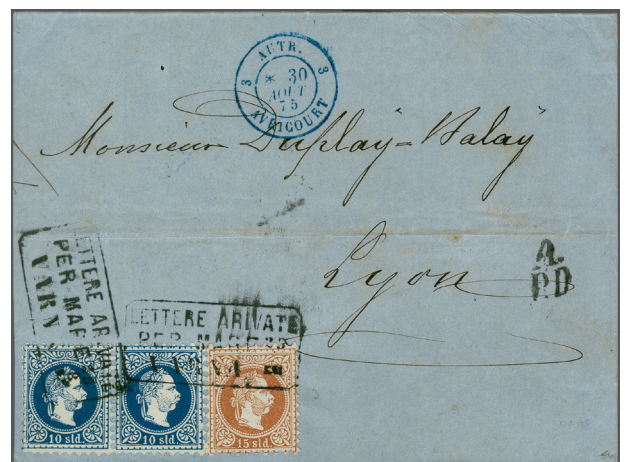 3 AUTR. 3
* 30
AOUT
75
AVRICOURT
Monsieur Duplaÿ-Balaÿ
Lyon
A.
P.D
LETTERE ARIVATE
PER MAR
VARN
LETTERE ARIVATE
PER MARE
10 sld.
10 sld.
15 sld.